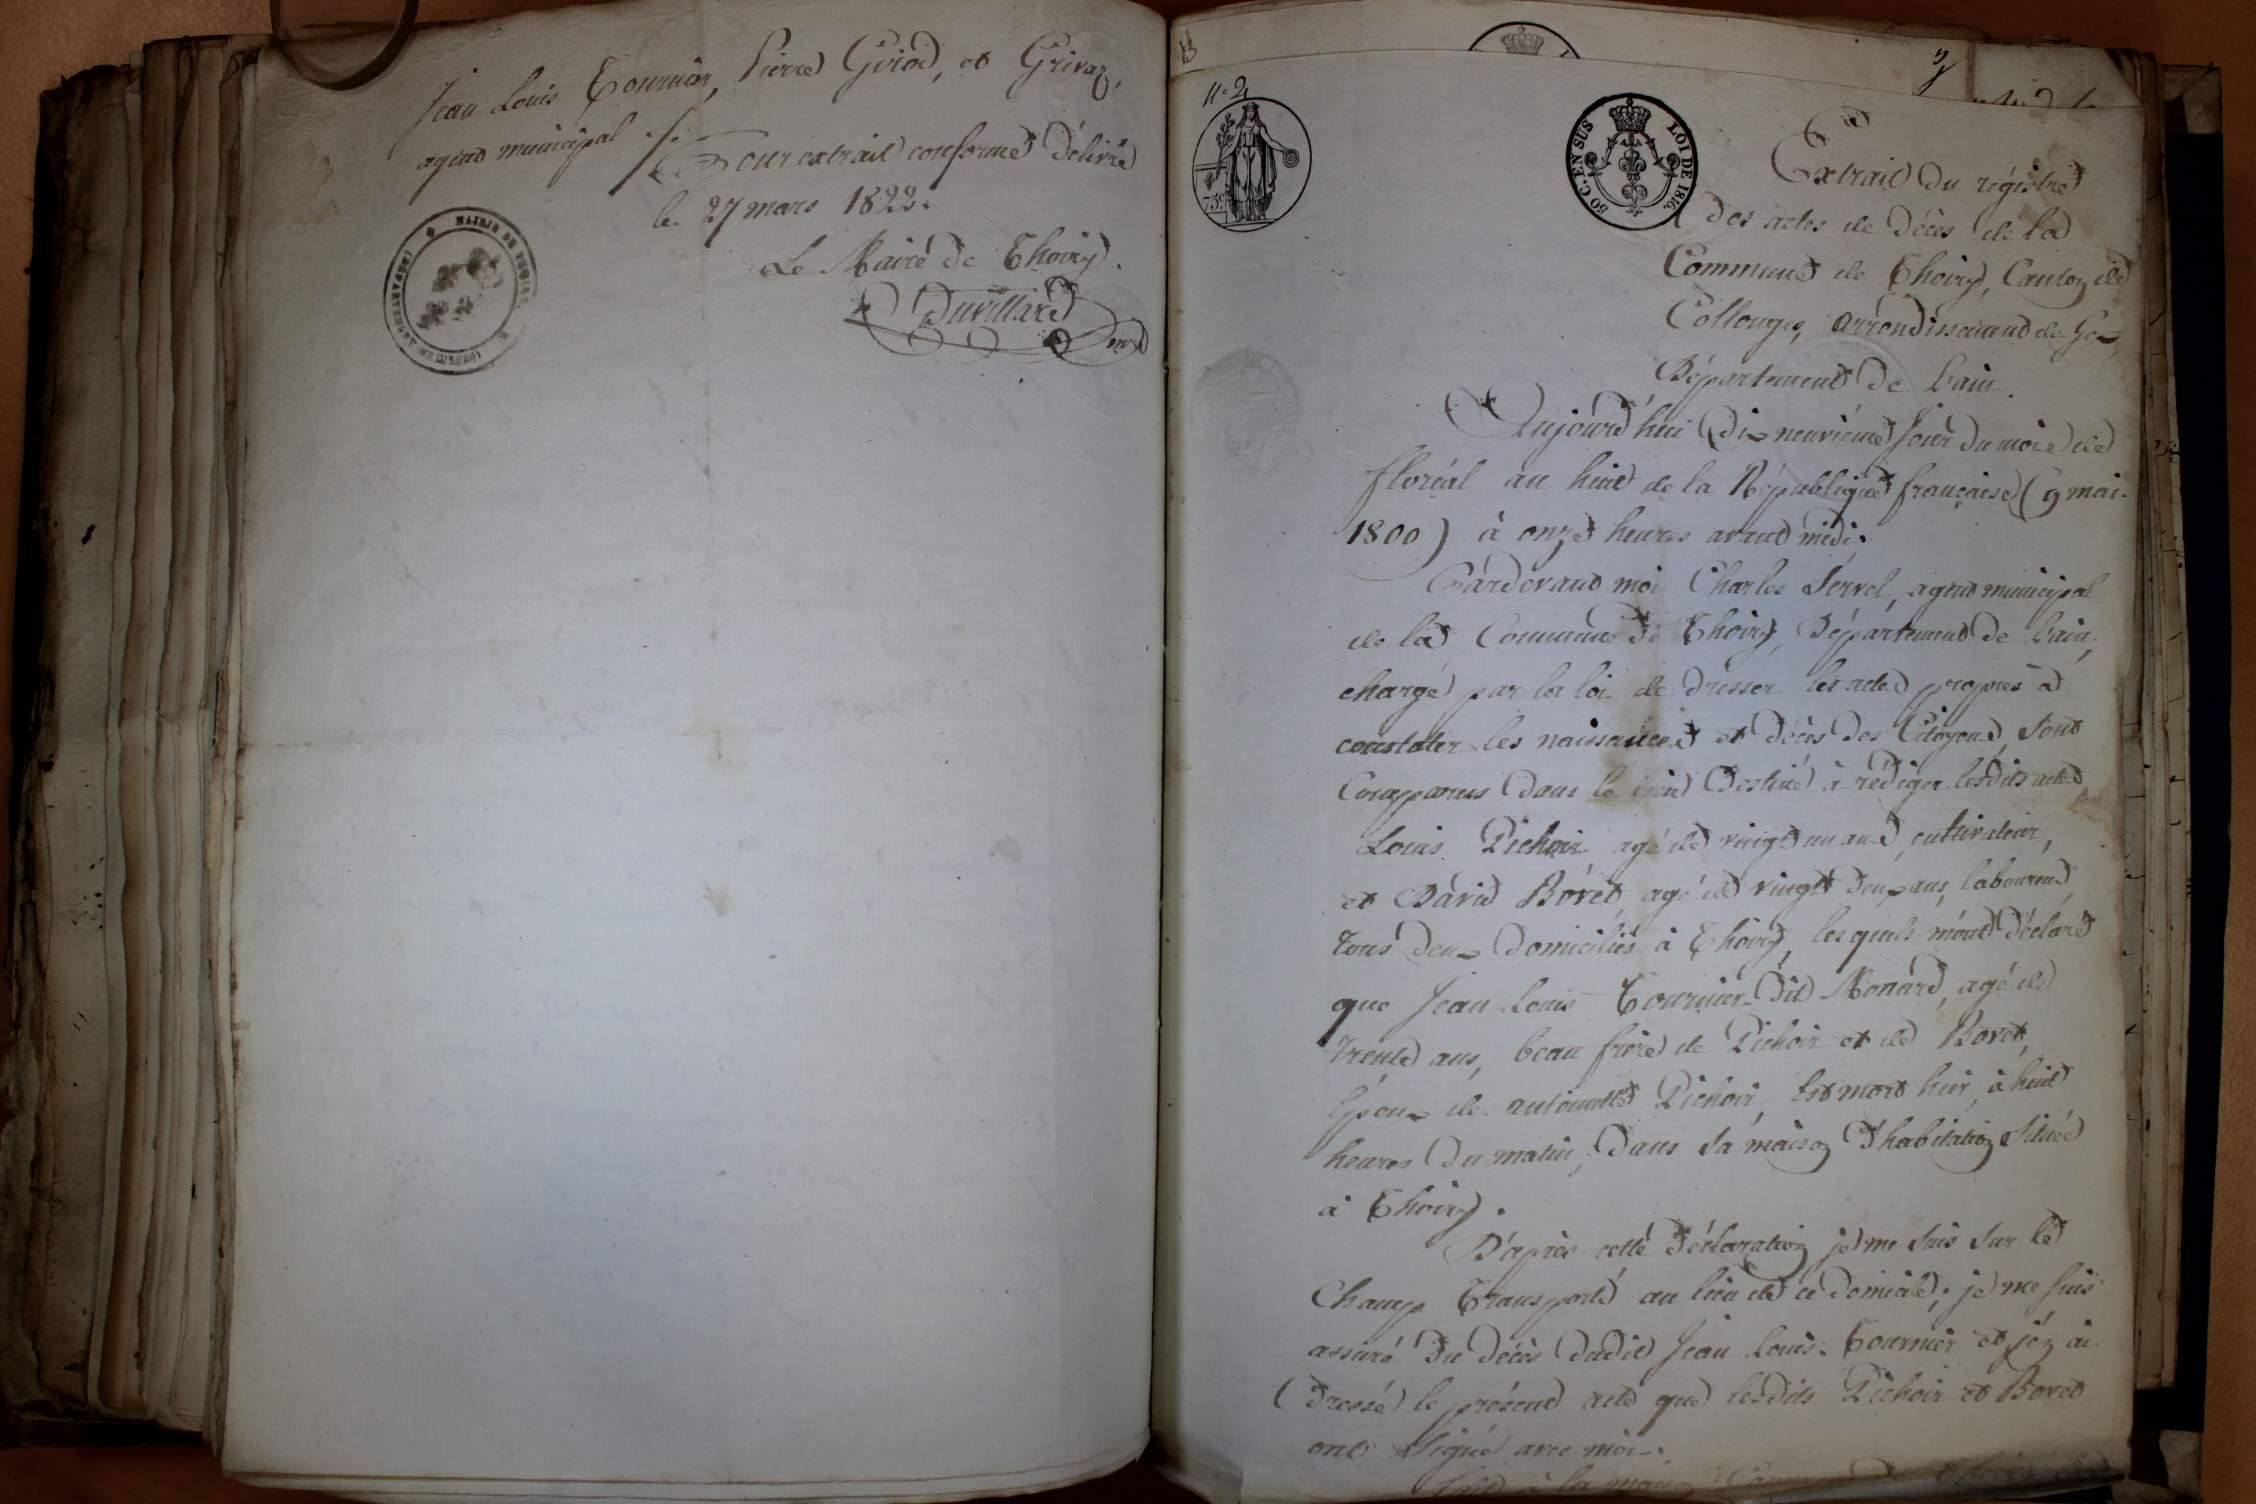 Jean Louis Tournier, Pierre Girod, et Grivaz,
agent municipal ./.
Pour extrait conforme Délivré
le 27 mars 1822.
Le Maire de Thoiry.
Duvillard
MAIRIE DE THOIRY
13
N.° 2
75 C
50 C. EN SUS
LOI DE 1816.
Extrait du régistre
des actes de décès de la
Commune de Thoiry, Canton de
Collonges, arrondissement de Gex,
Département de Lain.
Aujourd'hui Dix neuvième Jour du mois de
floréal an huit de la République française (9 mai
1800) à onze heures avant midi.
Pardevant moi Charles Servel, agent municipal
de la Commune de Thoiry, Département de Lain,
chargé par la loi de dresser les actes propres à
constater les naissances et décès des Citoyens, sont
Comparus dans le lieu destiné à rédiger lesdits actes
Louis Pichoir, agé de vingt un ans, cultivateur,
et David Bovet, agé de vingt deux ans, laboureur,
tous deux domiciliés à Thoiry, lesquels m'ont déclaré
que Jean Louis Tournier dit Monard, agé de
trente ans, beau frère de Pichoir et de Bovet,
Epoux de antoinette Pichoir, Est mort hier, à huit
heures du matin, dans sa maison d'habitation Située
à Thoiry.
D'après cette déclaration je me suis sur le
Champ Transporté au lieu de ce domicile; je me suis
assuré du décès dudit Jean Louis Tournier et j'en ai
dressé le présent acte que lesdits Pichoir et Bovet
ont signé avec moi.
fait à la maison Commune de Thoiry